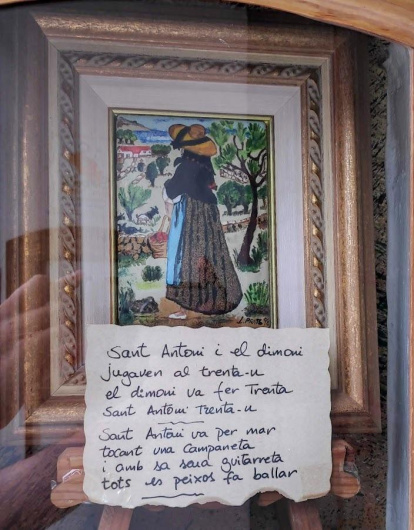 Sant Antoni i el dimoni
jugaven al trenta-u
el dimoni va fer Trenta
Sant Antoni Trenta-u
Sant Antoni va per mar
tocant una Campaneta
i amb sa seua guitarreta
tots es peixos fa ballar